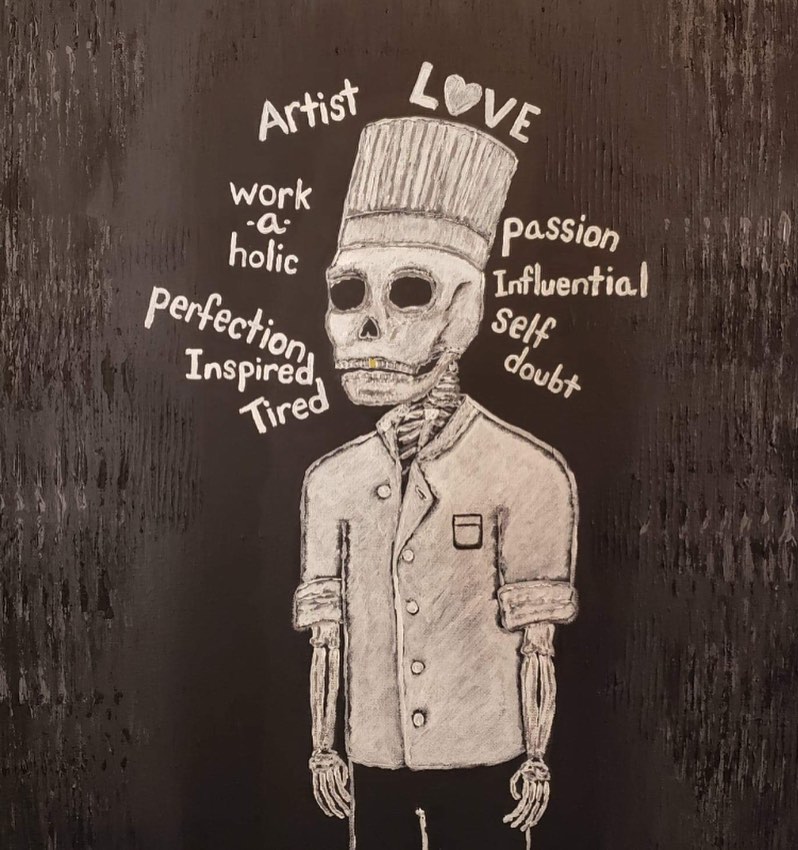 Artist
LOVE
work
-a-
holic
perfection
Inspired
Tired
passion
Influential
self
doubt